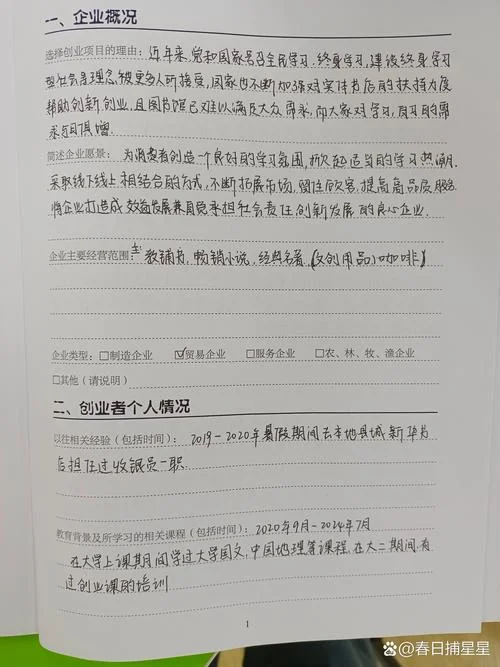 一、企业概况
选择创业项目的理由：近年来，党和国家号召全民学习、终身学习，建设终身学习
型社会等理念被更多人所接受，国家也不断加强对实体书店的扶持力度
帮助创新创业，且图书馆已难以满足大众需求，而大家对学习，自习的需
求与日俱增.
简述企业愿景：为消费者创造一个良好的学习氛围，掀起适当的学习热潮.
采取线下线上相结合的方式，不断拓展市场，留住顾客，提高高品质服务
将企业打造成效益发展兼自觉承担社会责任，创新发展的良心企业.
企业主要经营范围：主教辅书，畅销小说，经典名著，(文创用品)(咖啡)
企业类型：□制造企业 ☑贸易企业 □服务企业 □农、林、牧、渔企业
□其他（请说明）
二、创业者个人情况
以往相关经验（包括时间）：2019-2020年暑假期间去本地县城新华书
店担任过收银员一职
教育背景及所学习的相关课程（包括时间）：2020年9月-2024年7月
在大学上课期间学过大学国文，中国地理等课程，在大二期间，有
过创业课的培训
1
@春日捕星星